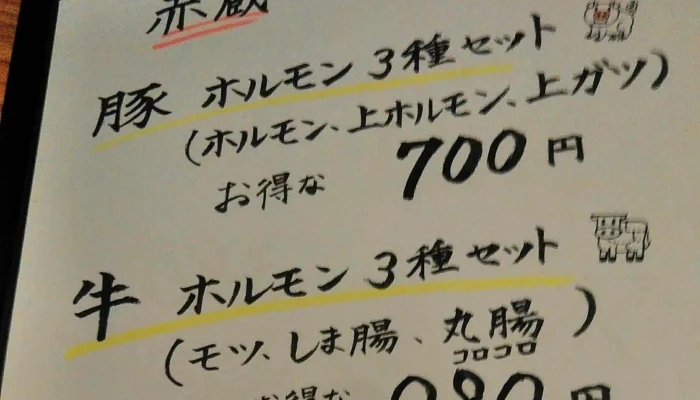 赤蔵
豚 ホルモン 3種セット
(ホルモン、上ホルモン、上ガツ)
お得な 700円
牛 ホルモン 3種セット
(モツ、しま腸、丸腸)
コロコロ
お得な 980円